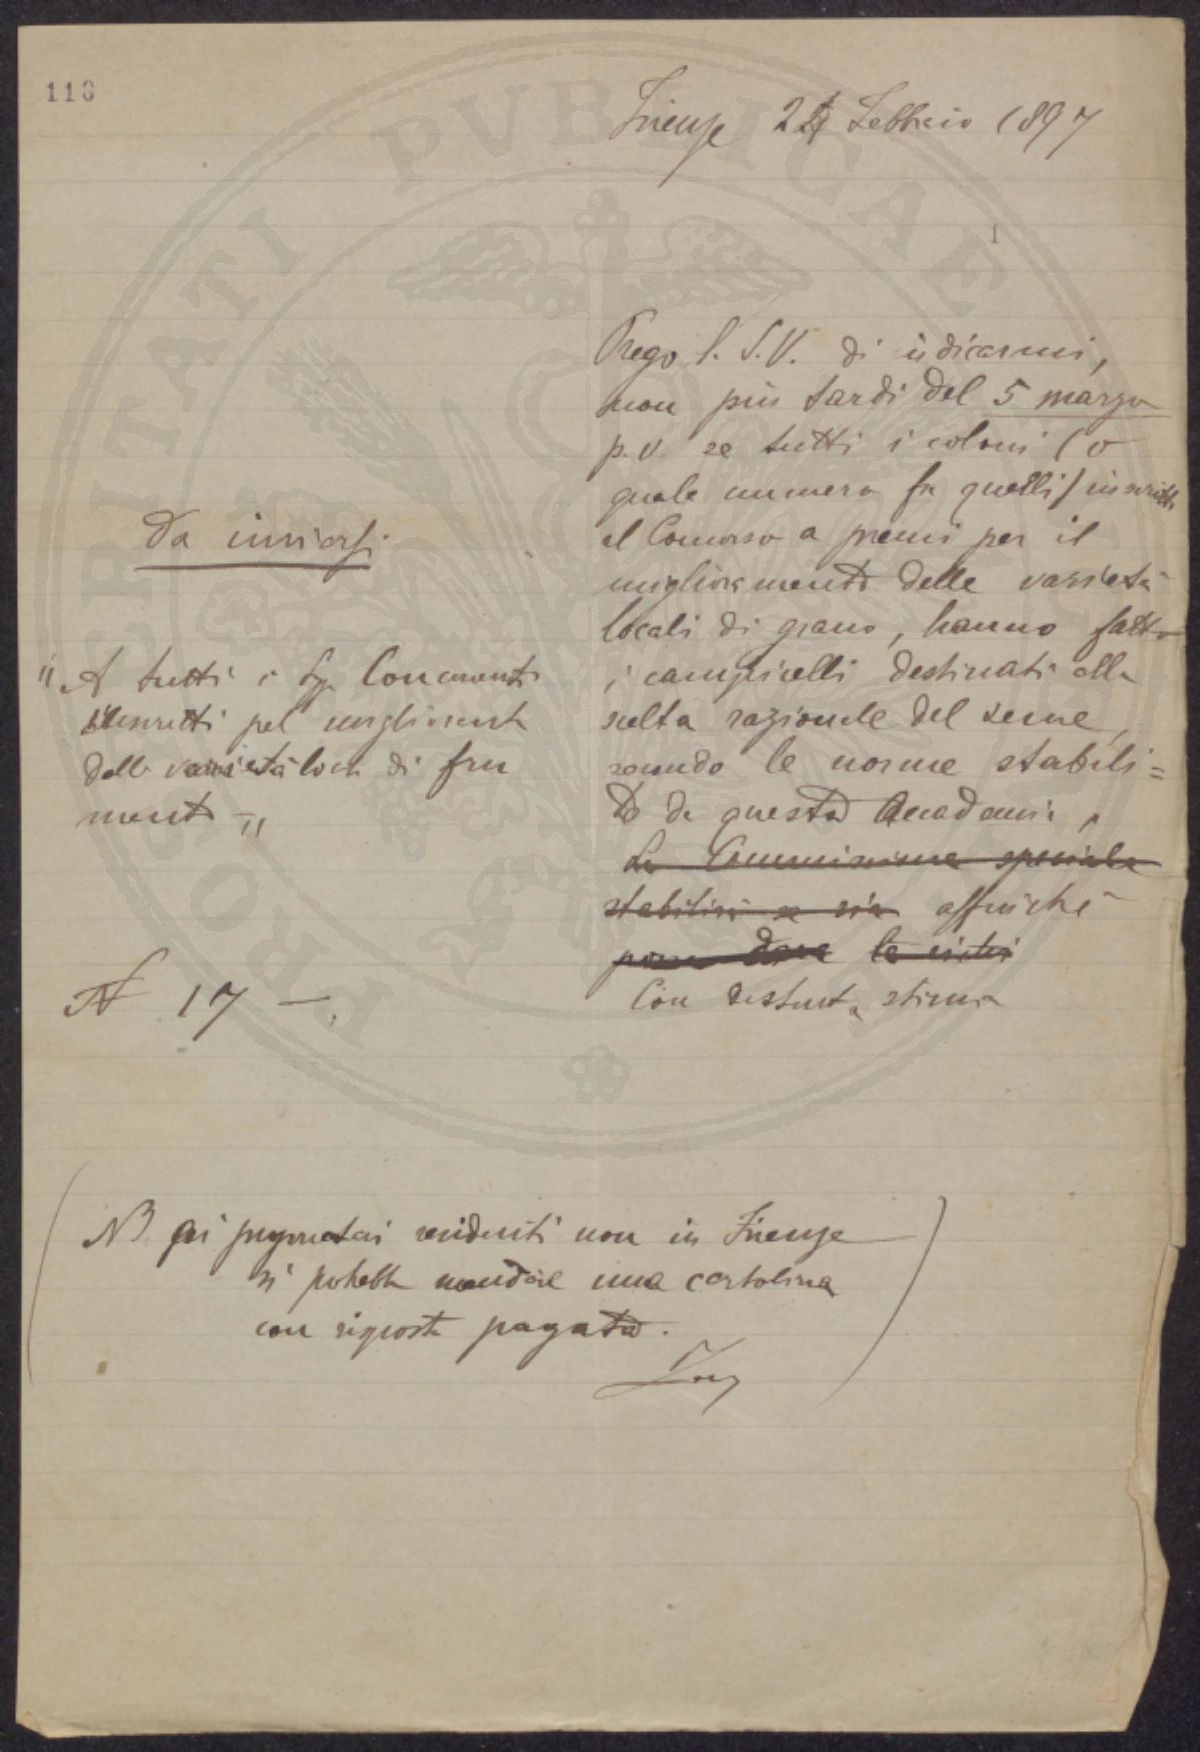 113
Firenze 24 Febbraio 1897
1
Prego l. S.V. di indicarmi,
non più tardi del 5 marzo
p.v. se tutti i coloni (o
quale numero fra quelli) inscritti
al Concorso a premi per il
miglioramento delle varietà
locali di grano, hanno fatto
i campicelli destinati alla
scelta razionale del seme,
secondo le norme stabili=
te da questa Accademia,
La Commissione speciale
stabilirà se sia affinchè
possa dare le visite
Con distinta stima
Da inviarsi
"A tutti i Sig. Concorrenti
inscritti pel miglioramento
delle varietà locali di fru
mento"
N 17 —.
NB ai proprietari residenti non in Firenze
si potrebbe mandare una cartolina
con risposta pagata.